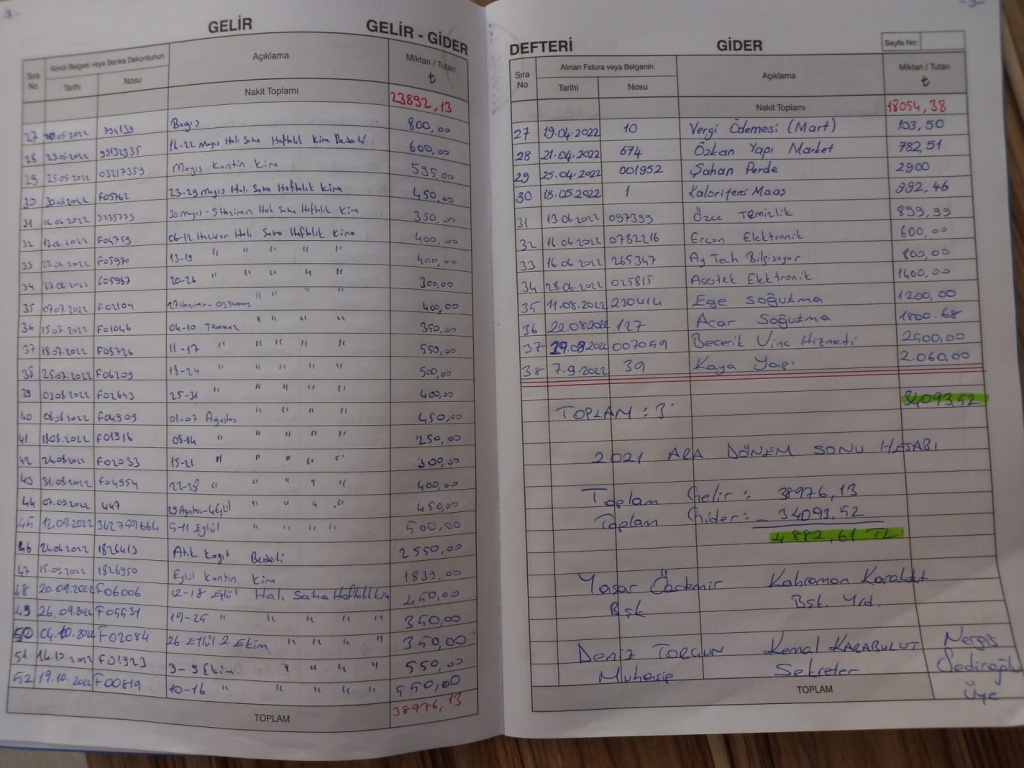 GELİR
GELİR - GİDER
Sıra No
Alındı Belgesi veya Banka Dekontunun
Açıklama
Miktarı / Tutarı ₺
Tarihi
Nosu
Nakit Toplamı
23892,13
27 Bağış 800,00
28 16-22 Mayıs Halı Saha Haftalık Kira Bedeli 600,00
29 03217359 Mayıs Kantin Kira 595,00
30 F05762 23-29 Mayıs Halı Saha Haftalık Kira 450,00
31 3235773 30 Mayıs - 5 Haziran Halı Saha Haftalık Kira 350,00
32 F04759 06-12 Haziran Halı Saha Haftalık Kira 400,00
33 F05970 13-19 " " " " 400,00
34 F05967 20-26 " " " " 300,00
35 07.07.2022 F02104 " " " 400,00
36 15.07.2022 F01046 04-10 Temmuz " " " " 350,00
37 18.07.2022 F08726 11-17 " " " " " 550,00
38 25.07.2022 F06203 18-24 " " " " " 500,00
39 F02643 25-31 " " " " 400,00
40 F04505 01-07 Ağustos " " " " 450,00
41 F01916 08-14 " " " " " 250,00
42 F02033 15-21 " " " " " 300,00
43 31.08.2022 F04554 22-28 " " " " " 400,00
44 07.09.2022 447 29 Ağustos-4 Eylül " " " " 450,00
45 12.09.2022 3427599664 5-11 Eylül " " " " 500,00
46 1826413 Atık Kağıt Bedeli 2550,00
47 15.09.2022 1826950 Eylül Kantin Kira 1839,00
48 20.09.2022 F06006 12-18 Eylül Halı Saha Haftalık Kira 450,00
49 26.09.2022 F05531 19-25 " " " " " 350,00
50 04.10.2022 F02084 26 Eylül 2 Ekim " " " " 350,00
51 F01323 3-9 Ekim " " " " 550,00
52 19.10.2022 F00819 10-16 " " " " " 550,00
TOPLAM
38976,13
DEFTERİ
GİDER
Sayfa No:
Sıra No
Alınan Fatura veya Belgenin
Açıklama
Miktarı / Tutarı ₺
Tarihi
Nosu
Nakit Toplamı
18054,38
27 19.04.2022 10 Vergi Ödemesi (Mart) 103,50
28 21.04.2022 674 Özkan Yapı Market 782,51
29 25.04.2022 001952 Şahan Perde 2900
30 18.05.2022 1 Kalorifer Maaş 992,46
31 13.06.2022 097399 Özce Temizlik 899,99
32 16.06.2022 0782216 Ercan Elektronik 600,00
33 16.06.2022 265347 Ag Tech Bilgisayar 800,00
34 28.06.2022 025815 Elektronik 1400,00
35 11.08.2022 230414 Ege Soğutma 1200,00
36 22.08.2022 127 Acar Soğutma 1800.68
37 29.08.2022 007059 Becerik Vinç Hizmeti 2500,00
38 7.9.2022 39 Kaya Yapı 2.060,00
TOPLAM :
34093,52
2021 ARA DÖNEM SONU HESABI
Toplam Gelir: 38976,13
Toplam Gider: - 34093,52
4.882,61 TL
Yaşar Özdemir Kahraman Karabulut
Bşk Bşk. Yrd.
Deniz TORGUN Kemal KARABULUT Nergis
Muhasip Sekreter Sediroğlu
Üye
TOPLAM